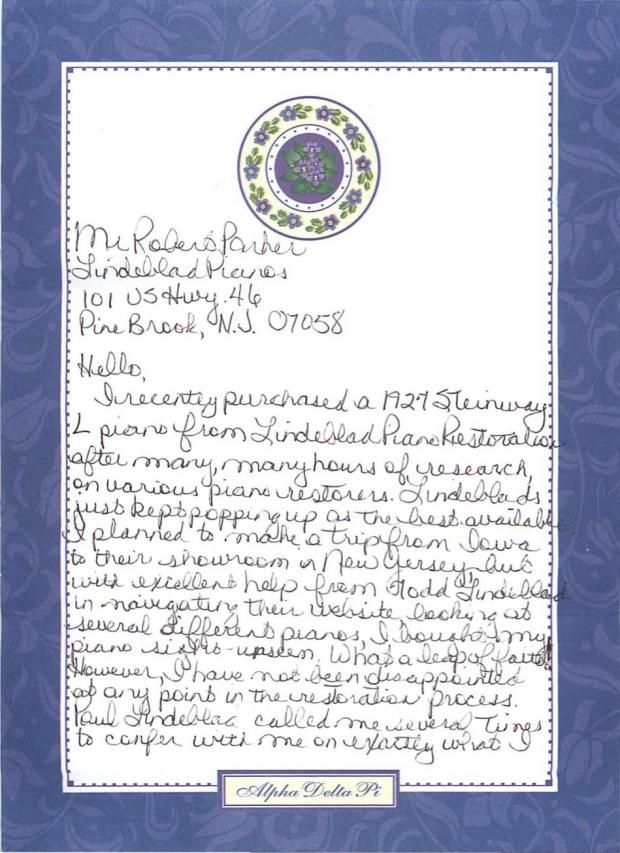 Mr Robert Parker
Lindeblad Pianos
101 US Hwy. 46
Pine Brook, N.J. 07058
Hello,
I recently purchased a 1927 Steinway
L piano from Lindeblad Piano Restoration
after many, many hours of research,
on various piano restorers. Lindeblads
just kept popping up as the best available.
I planned to make a trip from Iowa
to their showroom in New Jersey, but
with excellent help from Todd Lindeblad
in navigating their website, looking at
several different pianos, I bought my
piano sight-unseen. What a leap of faith!
However, I have not been disappointed
at any point in the restoration process.
Paul Lindeblad called me several times
to confer with me on exactly what I
Alpha Delta Pi